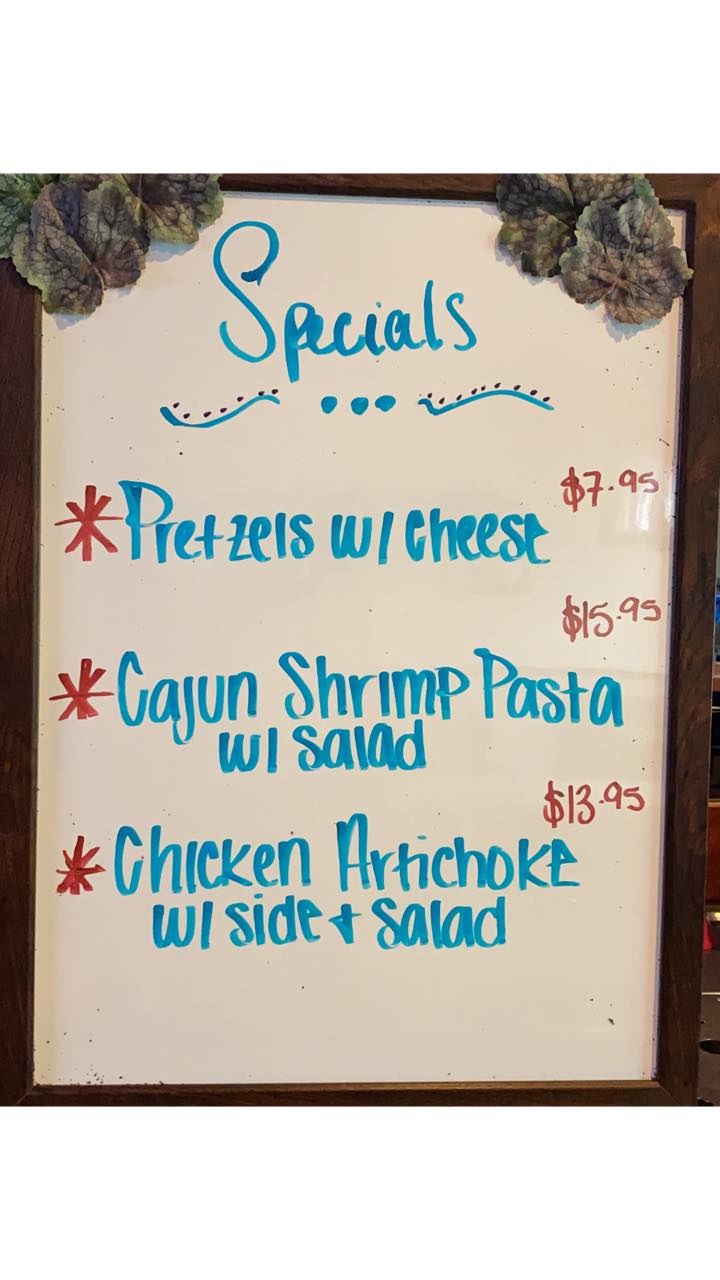 Specials
$7.95
*Pretzels w/ cheese
$15.95
*Cajun Shrimp Pasta
w/ salad
$13.95
*Chicken Artichoke
w/ side + salad